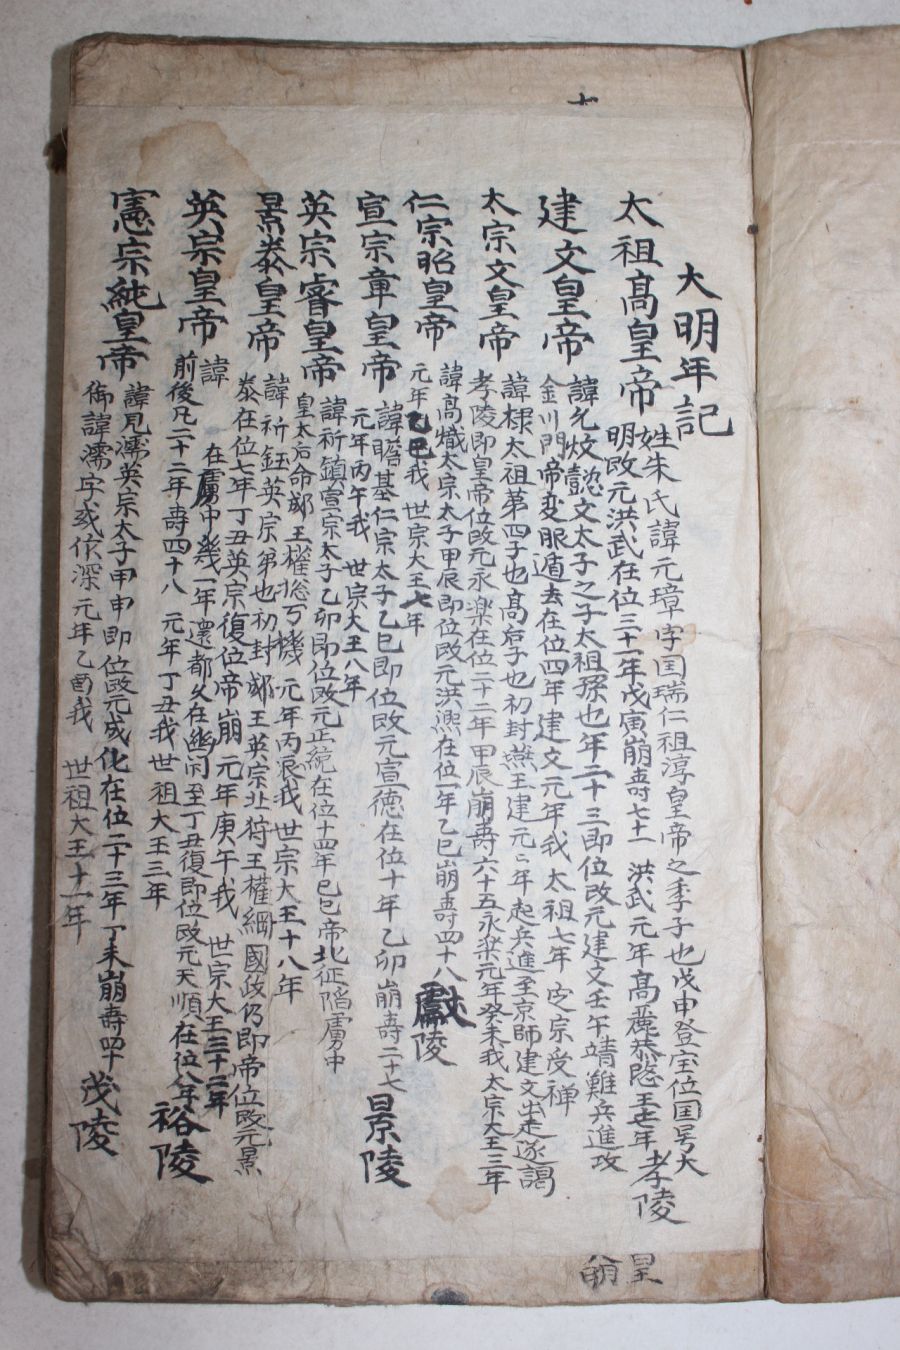 大明年記
太祖髙皇帝
姓朱氏諱元璋字国瑞仁祖淳皇帝之季子也戊申登宝位国号大
明改元洪武在位三十一年戊寅崩壽七十一 洪武元年高麗恭愍王七年 孝陵
建文皇帝
諱允炆懿文太子之子太祖孫也年二十三即位改元建文壬午靖難兵進攻
金川門帝変服遁去在位四年 建文元年我太祖七年 定宗受禅
太宗文皇帝
諱棣太祖第四子也髙后子也初封燕王建元二年起兵進至京師建文出走遂謁
孝陵即皇帝位改元永楽在位二十二年甲辰崩壽六十五永楽元年癸未我太宗大王三年
仁宗昭皇帝
諱高熾太宗太子甲辰即位改元洪熙在位一年乙巳崩壽四十八 獻陵
元年乙巳我 世宗大王七年
宣宗章皇帝
諱瞻基仁宗太子乙巳即位改元宣徳在位十年乙卯崩壽三十七 景陵
元年丙午我 世宗大王八年
英宗睿皇帝
諱祈鎮宣宗太子乙卯即位改元正統在位十四年己巳帝北征陷虜中
皇太后命郕王權揔万機 元年丙辰我世宗大王十八年
景泰皇帝
諱祈鈺英宗弟也初封郕王英宗北狩王權綱國政仍即帝位改元景
泰在位七年丁丑英宗復位帝崩 元年庚午我 世宗大王三十二年
英宗皇帝
諱 在虜中幾一年還都久在幽闭至丁丑復即位改元天順在位八年 裕陵
前後凡二十二年壽四十八 元年丁丑我世祖大王三年
憲宗純皇帝
諱見濡英宗太子甲申即位改元成化在位二十三年丁未崩壽四十 茂陵
御諱濡字或作深 元年乙酉我 世祖大王十一年
皇
崩